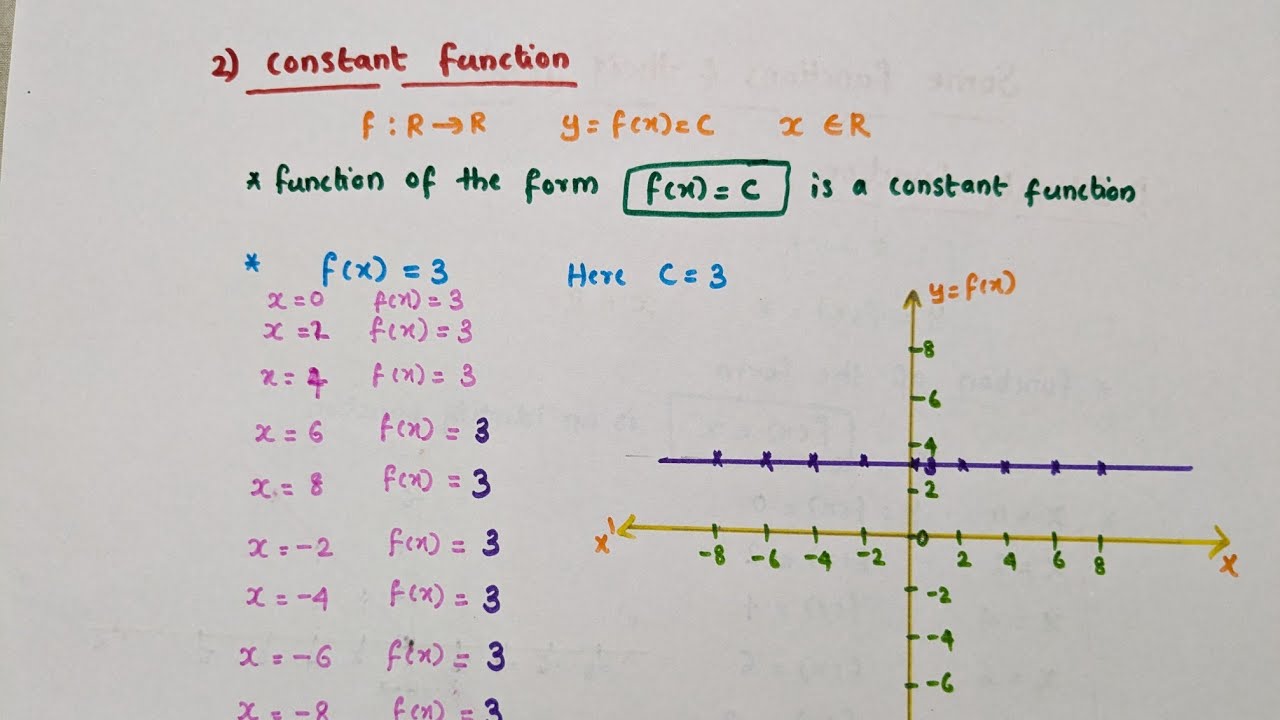 2) constant function
f : R → R y = f(x) = C x ∈ R
* function of the form f(x) = C is a constant function
* f(x) = 3 Here C = 3
x = 0 f(x) = 3
x = 2 f(x) = 3
x = 4 f(x) = 3
x = 6 f(x) = 3
x = 8 f(x) = 3
x = -2 f(x) = 3
x = -4 f(x) = 3
x = -6 f(x) = 3
x = -8 f(x) = 3
y = f(x)
8
6
4
3
2
x' x
-8 -6 -4 -2 0 2 4 6 8
-2
-4
-6